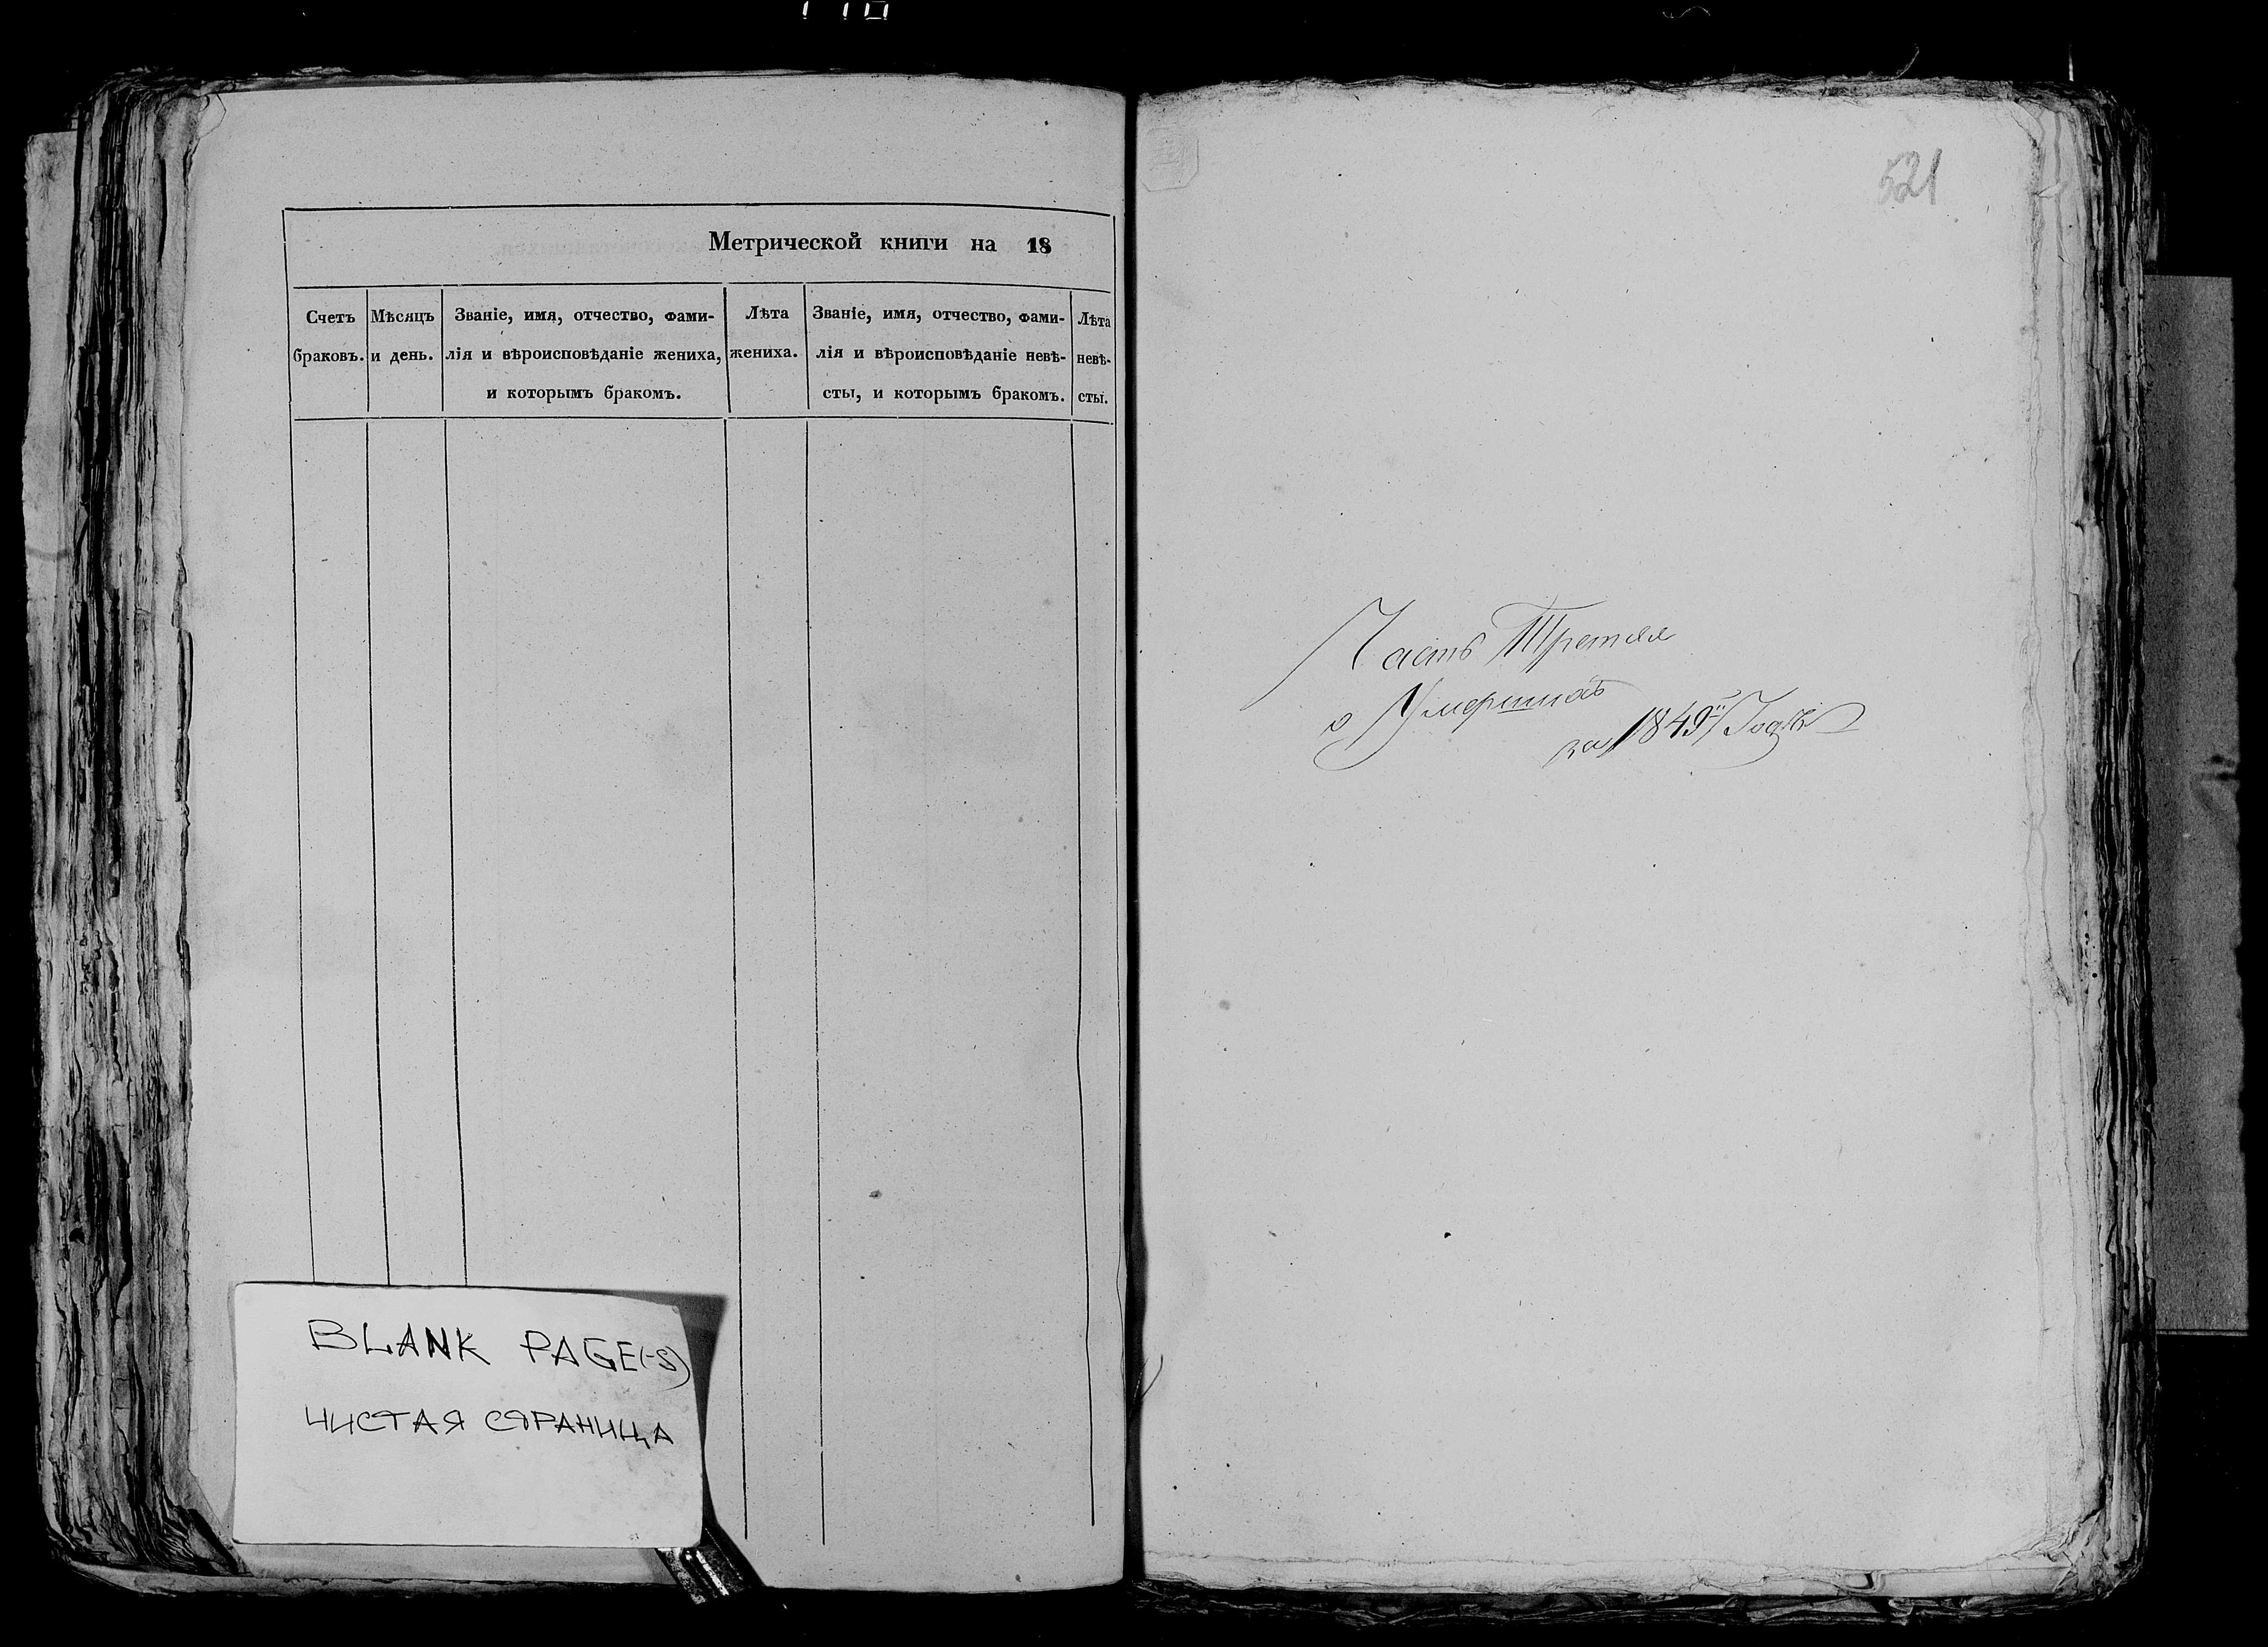 Метрической книги на 18
Счетъ браковъ.
Мѣсяцъ и день.
Званіе, имя, отчество, фами-
лія и вѣроисповѣданіе жениха,
и которымъ бракомъ.
Лѣта
жениха.
Званіе, имя, отчество, фами-
лія и вѣроисповѣданіе невѣ-
сты, и которымъ бракомъ.
Лѣта
невѣ-
сты.
BLANK PAGE(-S)
ЧИСТАЯ СТРАНИЦА
521
Часть Третья
о Умершихъ
на 1849й Годъ